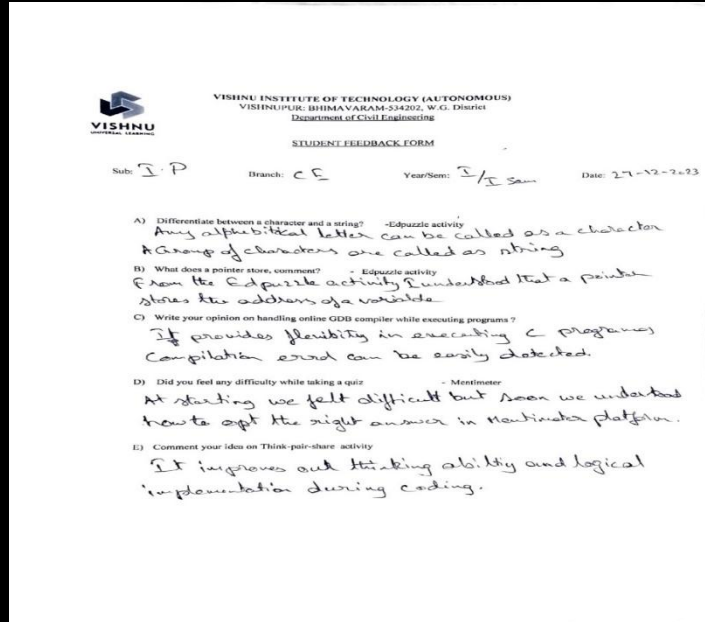 VISHNU
UNIVERSAL LEARNING
VISHNU INSTITUTE OF TECHNOLOGY (AUTONOMOUS)
VISHNUPUR: BHIMAVARAM-534202, W.G. District
Department of Civil Engineering
STUDENT FEEDBACK FORM
Sub: I.P Branch: CE Year/Sem: I/I Sem Date: 27-12-2023
A) Differentiate between a character and a string? -Edpuzzle activity
Any alphebitical letter can be called as a character
A Group of characters are called as string
B) What does a pointer store, comment? - Edpuzzle activity
From the Edpuzzle activity I understood that a pointer
stores the address of a variable
C) Write your opinion on handling online GDB compiler while executing programs ?
It provides flexibity in executing C programs
Compilation errol can be easily detected.
D) Did you feel any difficulty while taking a quiz - Mentimeter
At starting we felt difficult but soon we understood
how to opt the right answer in Mentimeter platform.
E) Comment your idea on Think-pair-share activity
It improves out thinking ability and logical
implementation during coding.